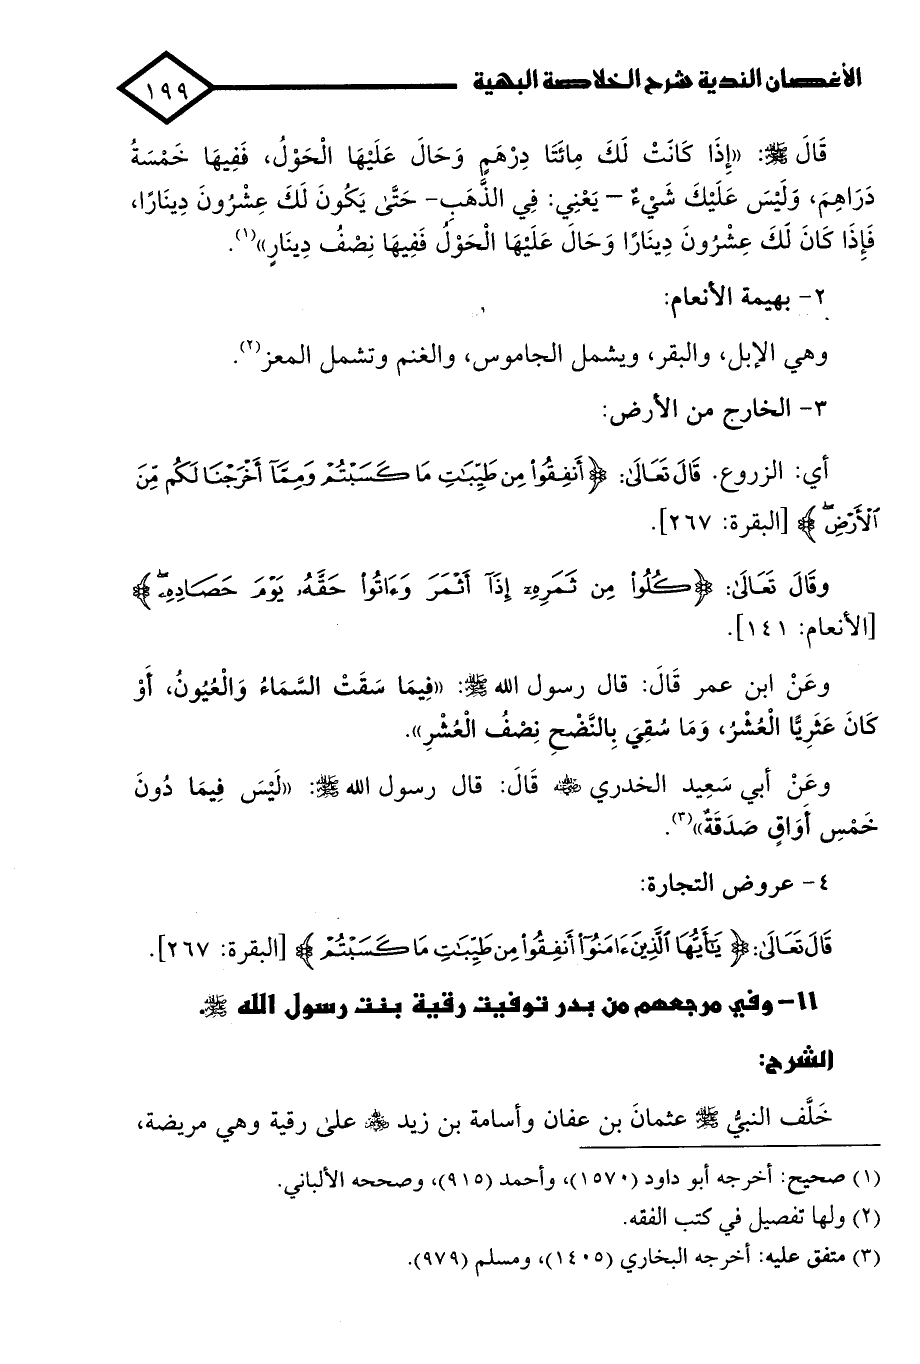 الأغصان الندية شرح الخلاصة البهية
١٩٩
قَالَ ﷺ: «إِذَا كَانَتْ لَكَ مِائَتَا دِرْهَمٍ وَحَالَ عَلَيْهَا الْحَوْلُ، فَفِيهَا خَمْسَةُ
دَرَاهِمَ، وَلَيْسَ عَلَيْكَ شَيْءٌ – يَعْنِي: فِي الذَّهَبِ- حَتَّى يَكُونَ لَكَ عِشْرُونَ دِينَارًا،
فَإِذَا كَانَ لَكَ عِشْرُونَ دِينَارًا وَحَالَ عَلَيْهَا الْحَوْلُ فَفِيهَا نِصْفُ دِينَارٍ»(١).
٢- بهيمة الأنعام:
وهي الإبل، والبقر، ويشمل الجاموس، والغنم وتشمل المعز(٢).
٣- الخارج من الأرض:
أي: الزروع. قَالَ تَعَالَى: ﴿أَنفِقُوا۟ مِن طَيِّبَـٰتِ مَا كَسَبْتُمْ وَمِمَّآ أَخْرَجْنَا لَكُم مِّنَ
ٱلْأَرْضِ ۖ﴾ [البقرة: ٢٦٧].
وقَالَ تَعَالَى: ﴿كُلُوا۟ مِن ثَمَرِهِۦٓ إِذَآ أَثْمَرَ وَءَاتُوا۟ حَقَّهُۥ يَوْمَ حَصَادِهِۦ ۖ﴾
[الأنعام: ١٤١].
وعَنْ ابن عمر قَالَ: قال رسول الله ﷺ: «فِيمَا سَقَتْ السَّمَاءُ وَالْعُيُونُ، أَوْ
كَانَ عَثَرِيًّا الْعُشْرُ، وَمَا سُقِيَ بِالنَّضْحِ نِصْفُ الْعُشْرِ».
وعَنْ أبي سَعِيد الخدري رضي الله عنه قَالَ: قال رسول الله ﷺ: «لَيْسَ فِيمَا دُونَ
خَمْسِ أَوَاقٍ صَدَقَةٌ»(٣).
٤- عروض التجارة:
قَالَ تَعَالَى: ﴿يَـٰٓأَيُّهَا ٱلَّذِينَ ءَامَنُوٓا۟ أَنفِقُوا۟ مِن طَيِّبَـٰتِ مَا كَسَبْتُمْ﴾ [البقرة: ٢٦٧].
١١- وفي مرجعهم من بدر توفيت رقية بنت رسول الله ﷺ.
الشرح:
خَلَّف النبيُّ ﷺ عثمانَ بن عفان وأسامة بن زيد رضي الله عنهما على رقية وهي مريضة،
(١) صحيح: أخرجه أبو داود (١٥٧٠)، وأحمد (٩١٥)، وصححه الألباني.
(٢) ولها تفصيل في كتب الفقه.
(٣) متفق عليه: أخرجه البخاري (١٤٠٥)، ومسلم (٩٧٩).